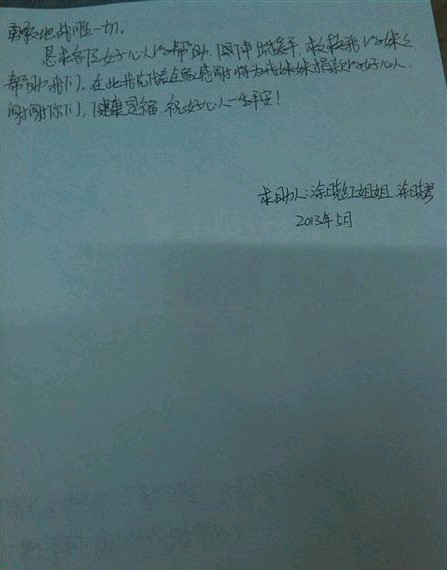 勇敢地战胜一切。
恳求各位好心人的帮助，伸出援手，救救我的妹妹
帮助我们。在此我代表全家感谢将为我妹妹捐款的好心人.
谢谢你们，健康是福，祝好心人一生平安！
求助人:涂晓红姐姐 涂晓
2013年5月